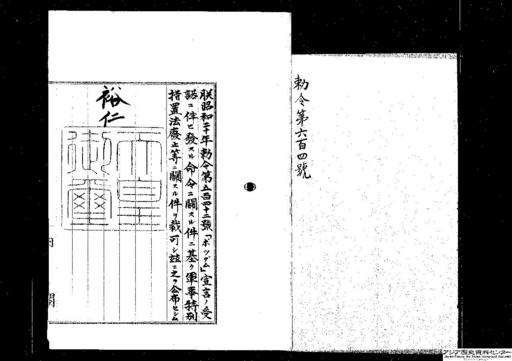 勅令第六百四號
朕昭和二十年勅令第五百四十二號「ポツダム」宣言ノ受
諾ニ伴ヒ發スル命令ニ關スル件ニ基ク軍事特別
措置法廢止等ニ關スル件ヲ裁可シ茲ニ之ヲ公布セシム
裕仁
天皇
御璽
内閣
アジア歴史資料センター